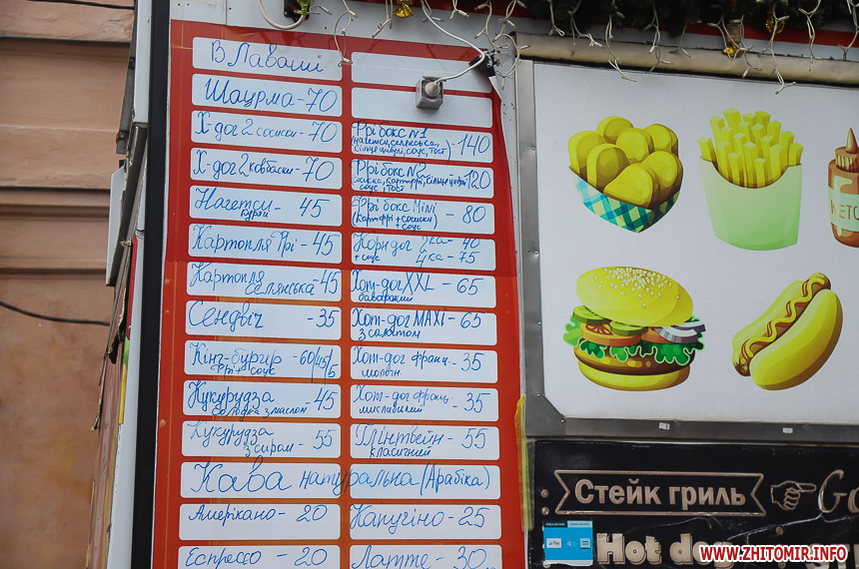 В Лаваші
Шаурма-70
Х-дог 2 сосиски -70
Х-дог 2 ковбаски-70
Нагетси - 45
Картопля Фрі-45
Картопля -45
селянська
Сендвіч -35
Кінг-бургер -60/45/5
Фрі + соус
Кукурудза -45
солодка з маслом
Кукурудза -55
з сиром
Кава натуральна (Арабіка)
Амерікано-20
Еспрессо -20
Фрі бокс №1 -140
Фрі бокс №2 120
соус, тост
Фрі бокс Mini -80
+ соус
Корн дог 2ка- 40
+ соус 4ка- 75
Хот-дог XXL -65
баварский
Хот-дог MAXI-65
з салатом
Хот-дог франц. -35
молочн.
Хот-дог франц. -35
мисливський
Глінтвейн-55
класичний
Капучіно-25
Латте-30
Стейк гриль
Hot dog
WWW.ZHITOMIR.INFO